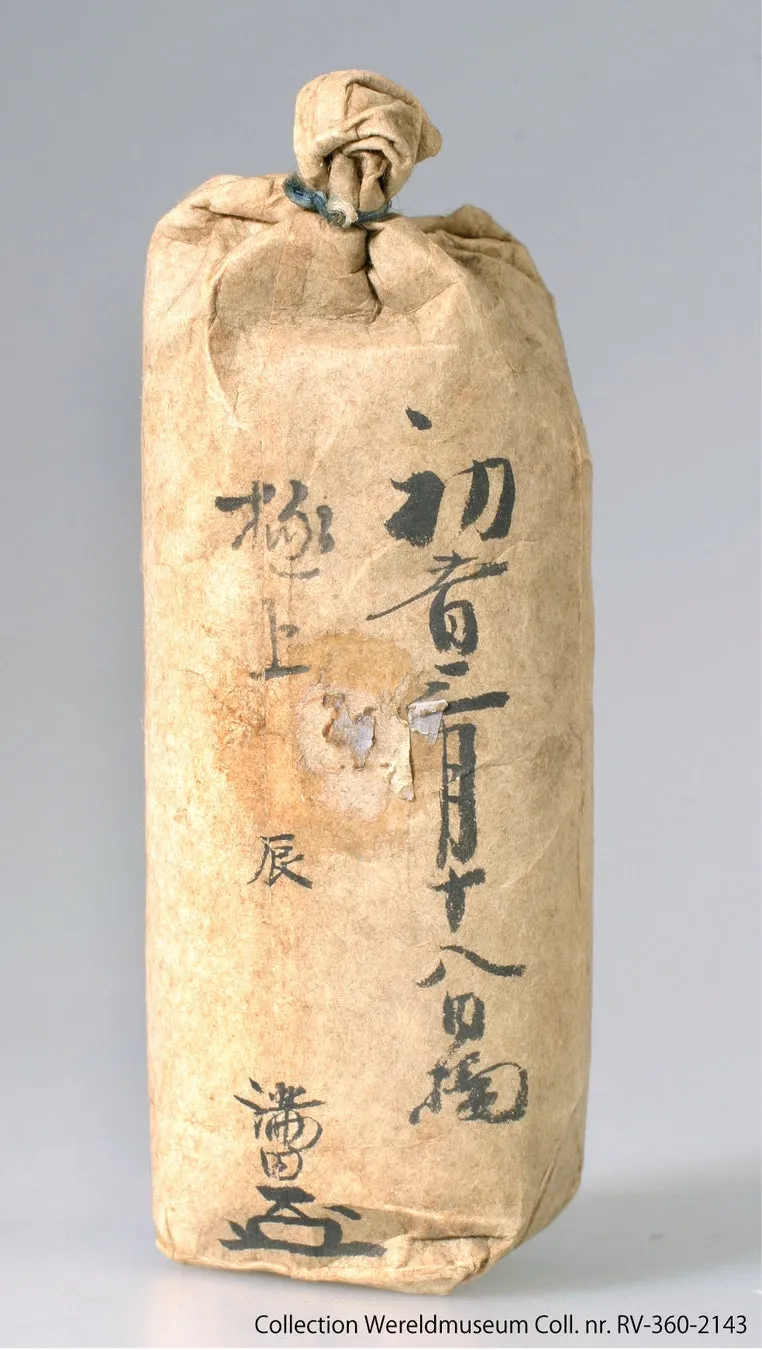 初昔三月十八日摘
極上
辰
満田
Collection Wereldmuseum Coll. nr. RV-360-2143